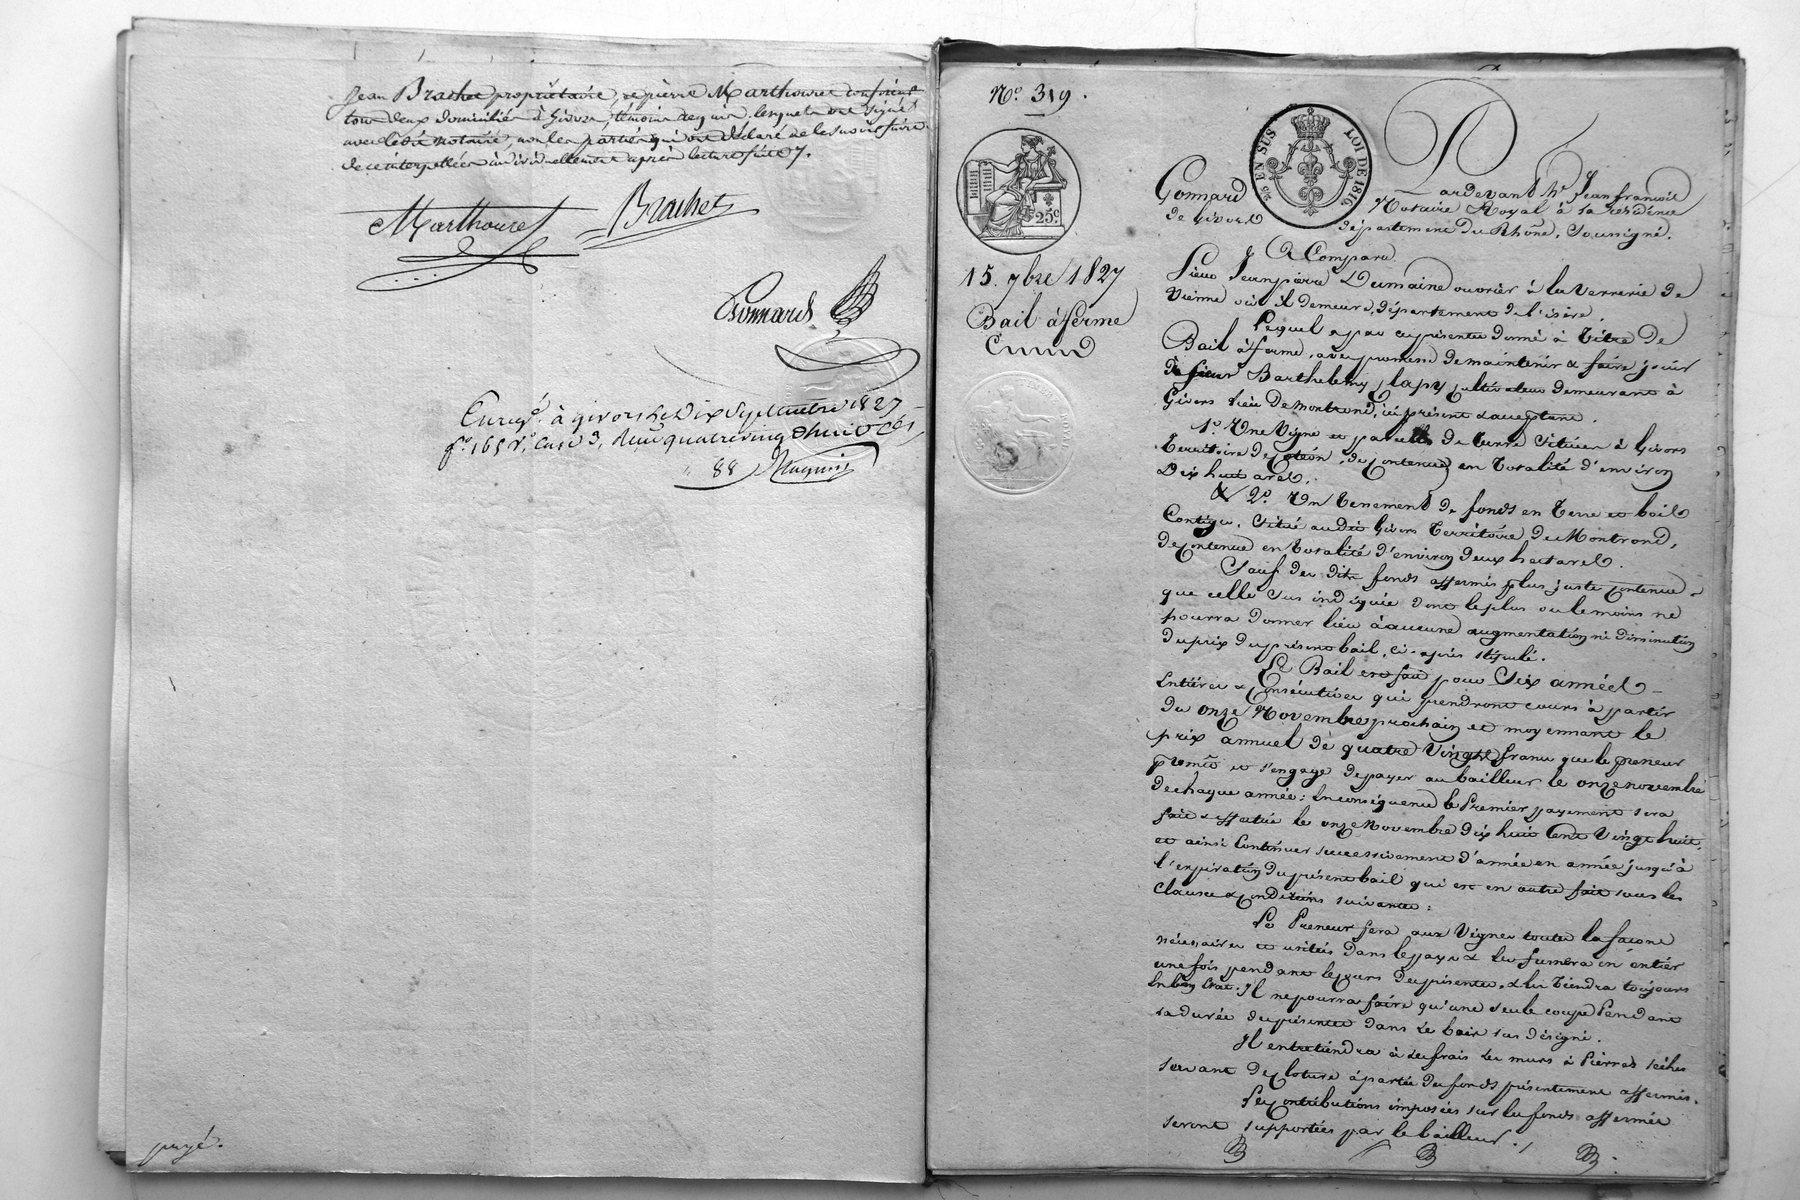 Jean Brachet propriétaire, et pierre Marthouret
tous deux domiciliés à Givors, témoins requis, lesquels ont signé
avec le dit notaire, non les parties qui ont déclaré ne le savoir faire
de ce interpellées individuellement après lecture faite.
Marthouret
Brachet
Connard
Enreg.é à givors le Dix Septembre 1827
f.o 165 V.o Case 3, Reçu quatre vingt huit c.es
88
payé.
N.o 319.
25 EN SUS
LOI DE 1816
25c.
15. 7bre 1827
Bail à ferme
Pardevant M.e Jean françois
Connard Notaire Royal à la résidence
de Givors département du Rhône, Soussigné.
A Comparu
Sieur Jeanpierre Dumaine ouvrier à la Verrerie de
Vienne où il demeure, département de l'isère.
Lequel a par ces présentes donné à Titre de
Bail à ferme, avec promesse de maintenir & faire jouir
à sieur Barthelemy Clapy Cultivateur demeurant à
Givors lieu de montrond, ici présent & acceptant.
1.o Une Vigne et parcelle de terre Situées à Givors
territoire de de Contenue en Totalité d'environ
Dix huit ares.
& 2.o Un Tenement de fonds en Terre et bois
Contigu, Situé au dit Givors Territoire de Montrond,
de Contenue en totalité d'environ deux hectares.
Sauf des dits fonds affermés plus juste Contenue
que celle sus indiquée dont le plus ou le moins ne
pourra donner lieu à aucune augmentation ni diminution
du prix du présent bail, ci-après stipulé.
Ce Bail est fait pour Six années
Entières & Consécutives qui prendront cours à partir
du onze Novembre prochain et moyennant le
prix annuel de quatre Vingts francs que le preneur
promet et s'engage de payer au bailleur le onze novembre
de chaque année: En conséquence le Premier payement sera
fait & effectué le onze Novembre dix huit Cent Vingt huit,
et ainsi Continuer successivement d'année en année jusqu'à
l'expiration du présent bail qui est en outre fait sous les
Clauses & Conditions suivantes:
Le Preneur fera aux Vignes toutes les façons
nécessaires et usitées dans le pays & les fumera en entier
une fois pendant le cours des présentes, & les Tiendra toujours
En bon Etat. Il ne pourra faire qu'une seule coupe Pendant
la durée des présentes dans le bois sus désigné.
Il entretiendra à ses frais les murs à Pierres sèches
servant de Cloture à partie des fonds présentement affermés.
Les Contributions imposées sur les fonds affermés
seront supportées par le bailleur.